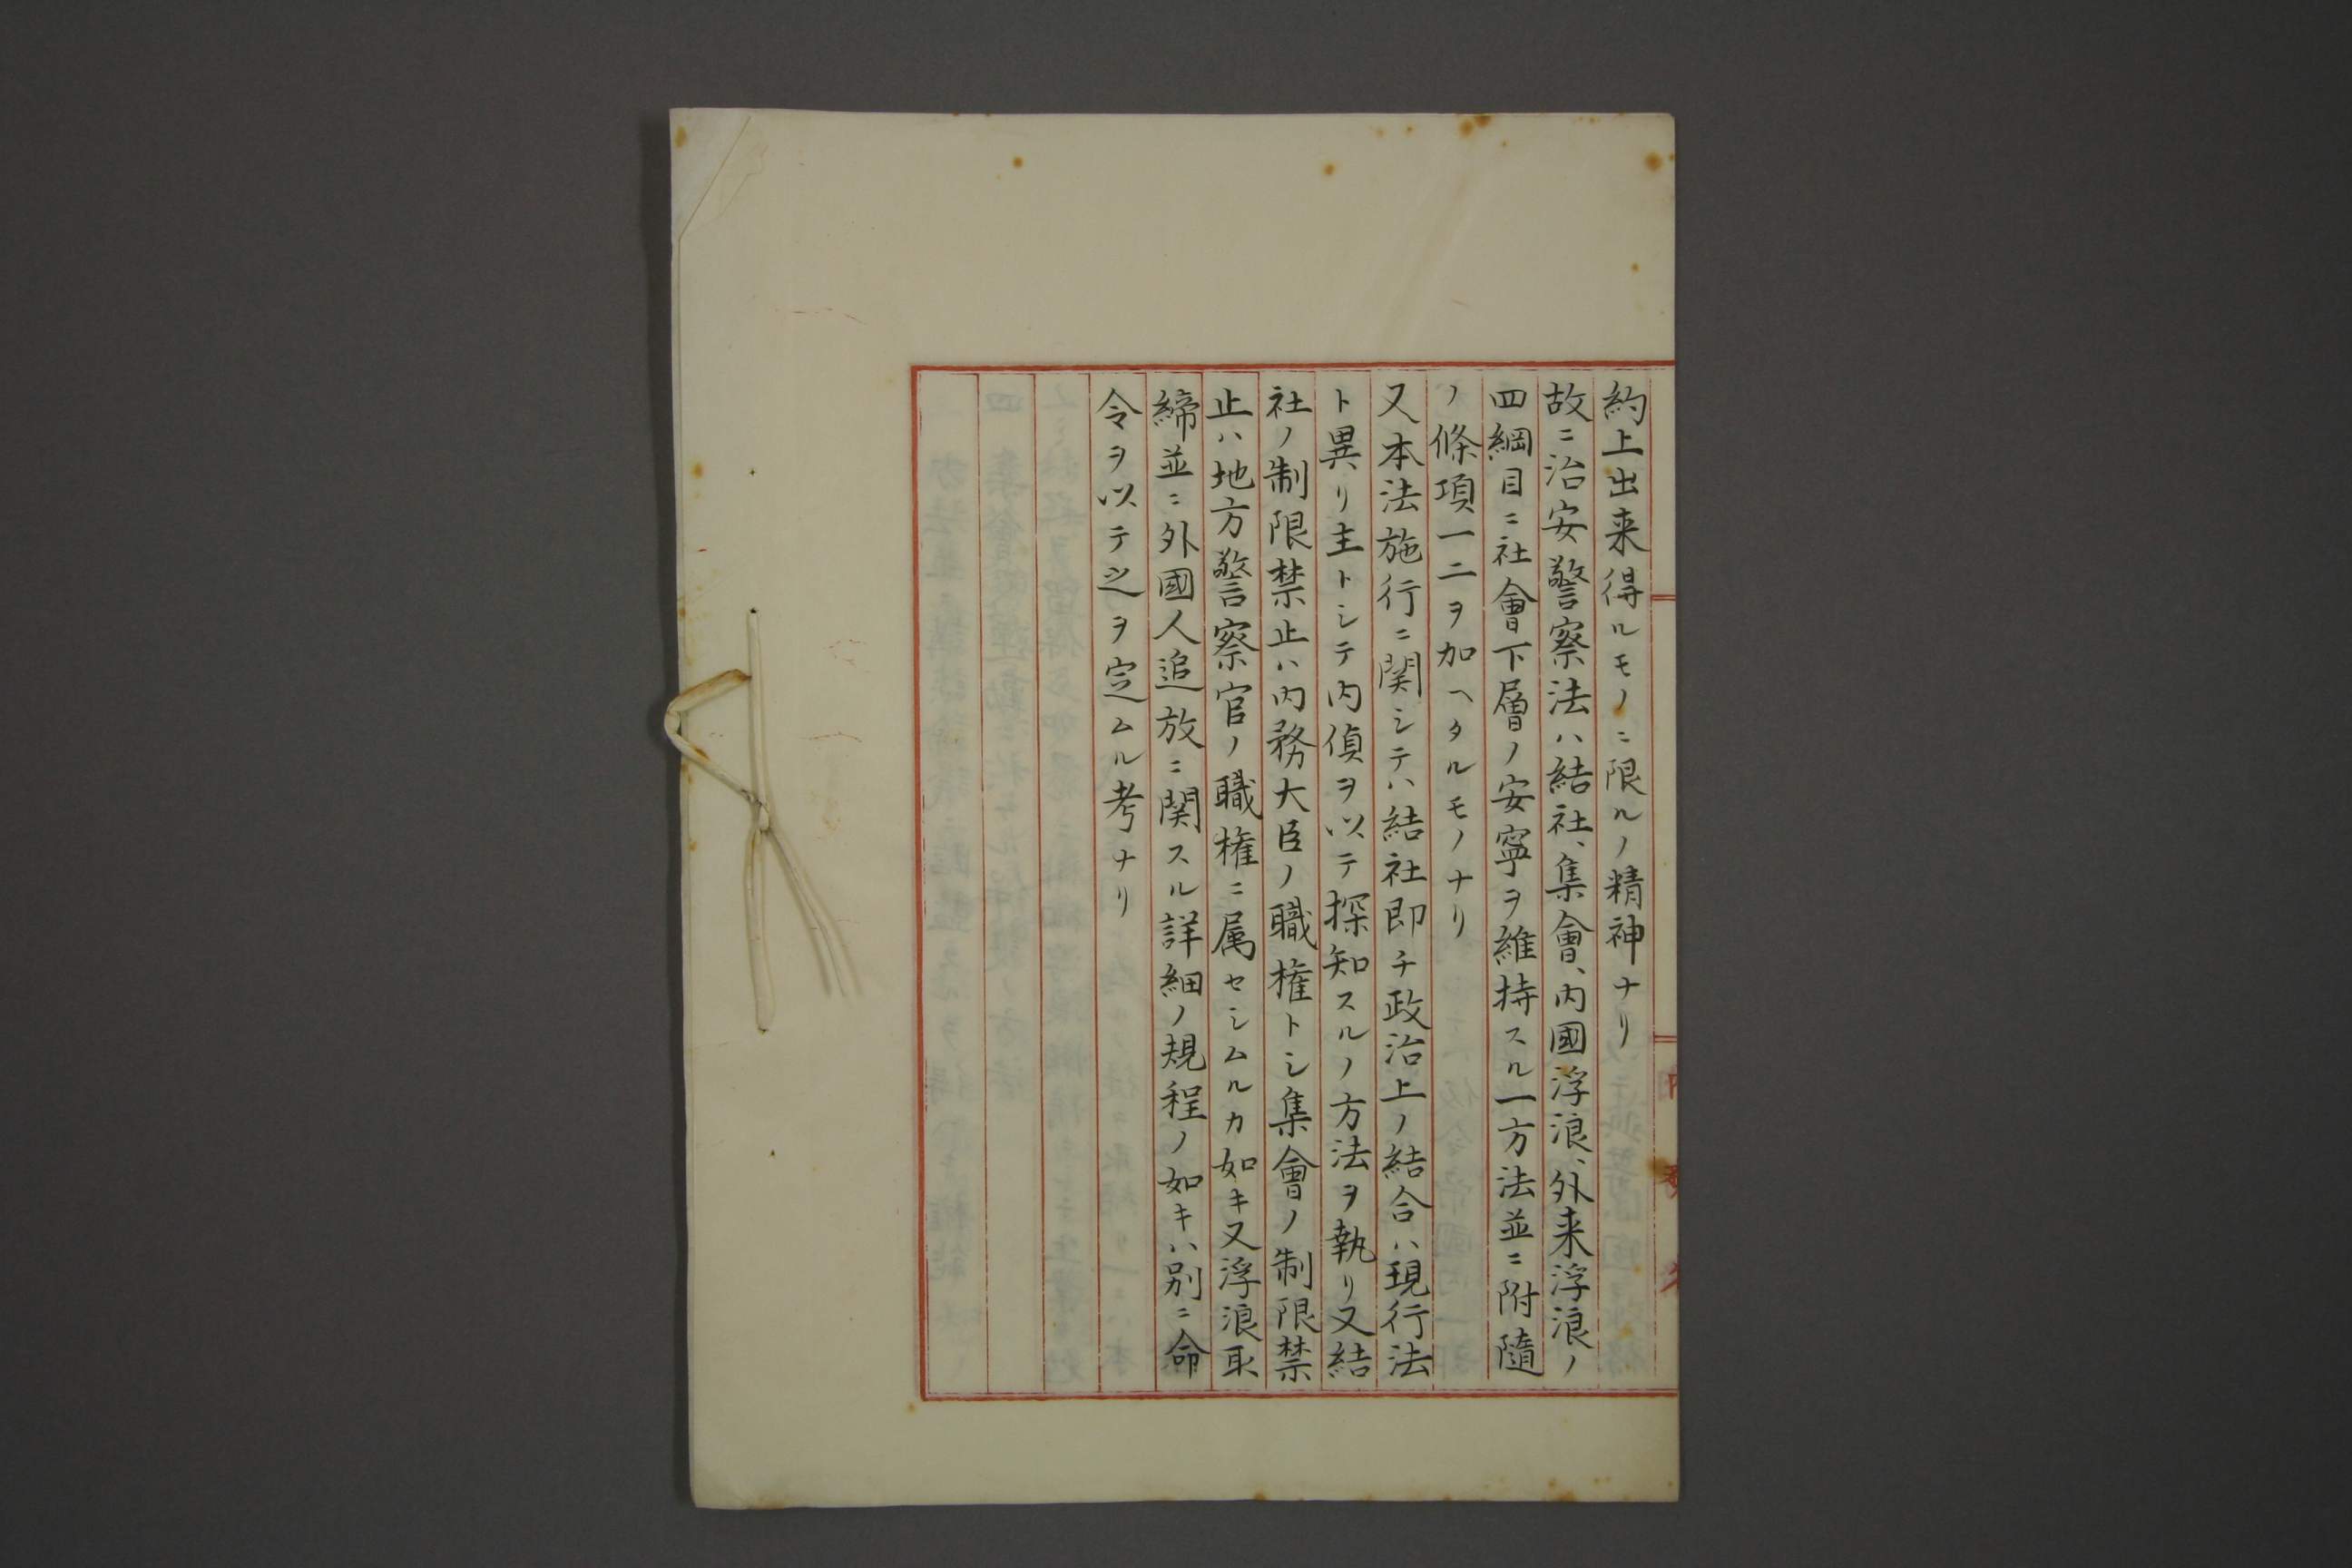 約上出来得ルモノニ限ルノ精神ナリ
故ニ治安警察法ハ結社、集會、内國浮浪、外来浮浪ノ
四綱目ニ社會下層ノ安寧ヲ維持スル一方法並ニ附隨
ノ條項一二ヲ加ヘタルモノナリ
又本法施行ニ関シテハ結社即チ政治上ノ結合ハ現行法
ト異リ主トシテ内偵ヲ以テ探知スルノ方法ヲ執リ又結
社ノ制限禁止ハ内務大臣ノ職権トシ集會ノ制限禁
止ハ地方警察官ノ職権ニ属セシムルカ如キ又浮浪取
締並ニ外國人追放ニ関スル詳細ノ規程ノ如キハ別ニ命
令ヲ以テ之ヲ定ムル考ナリ